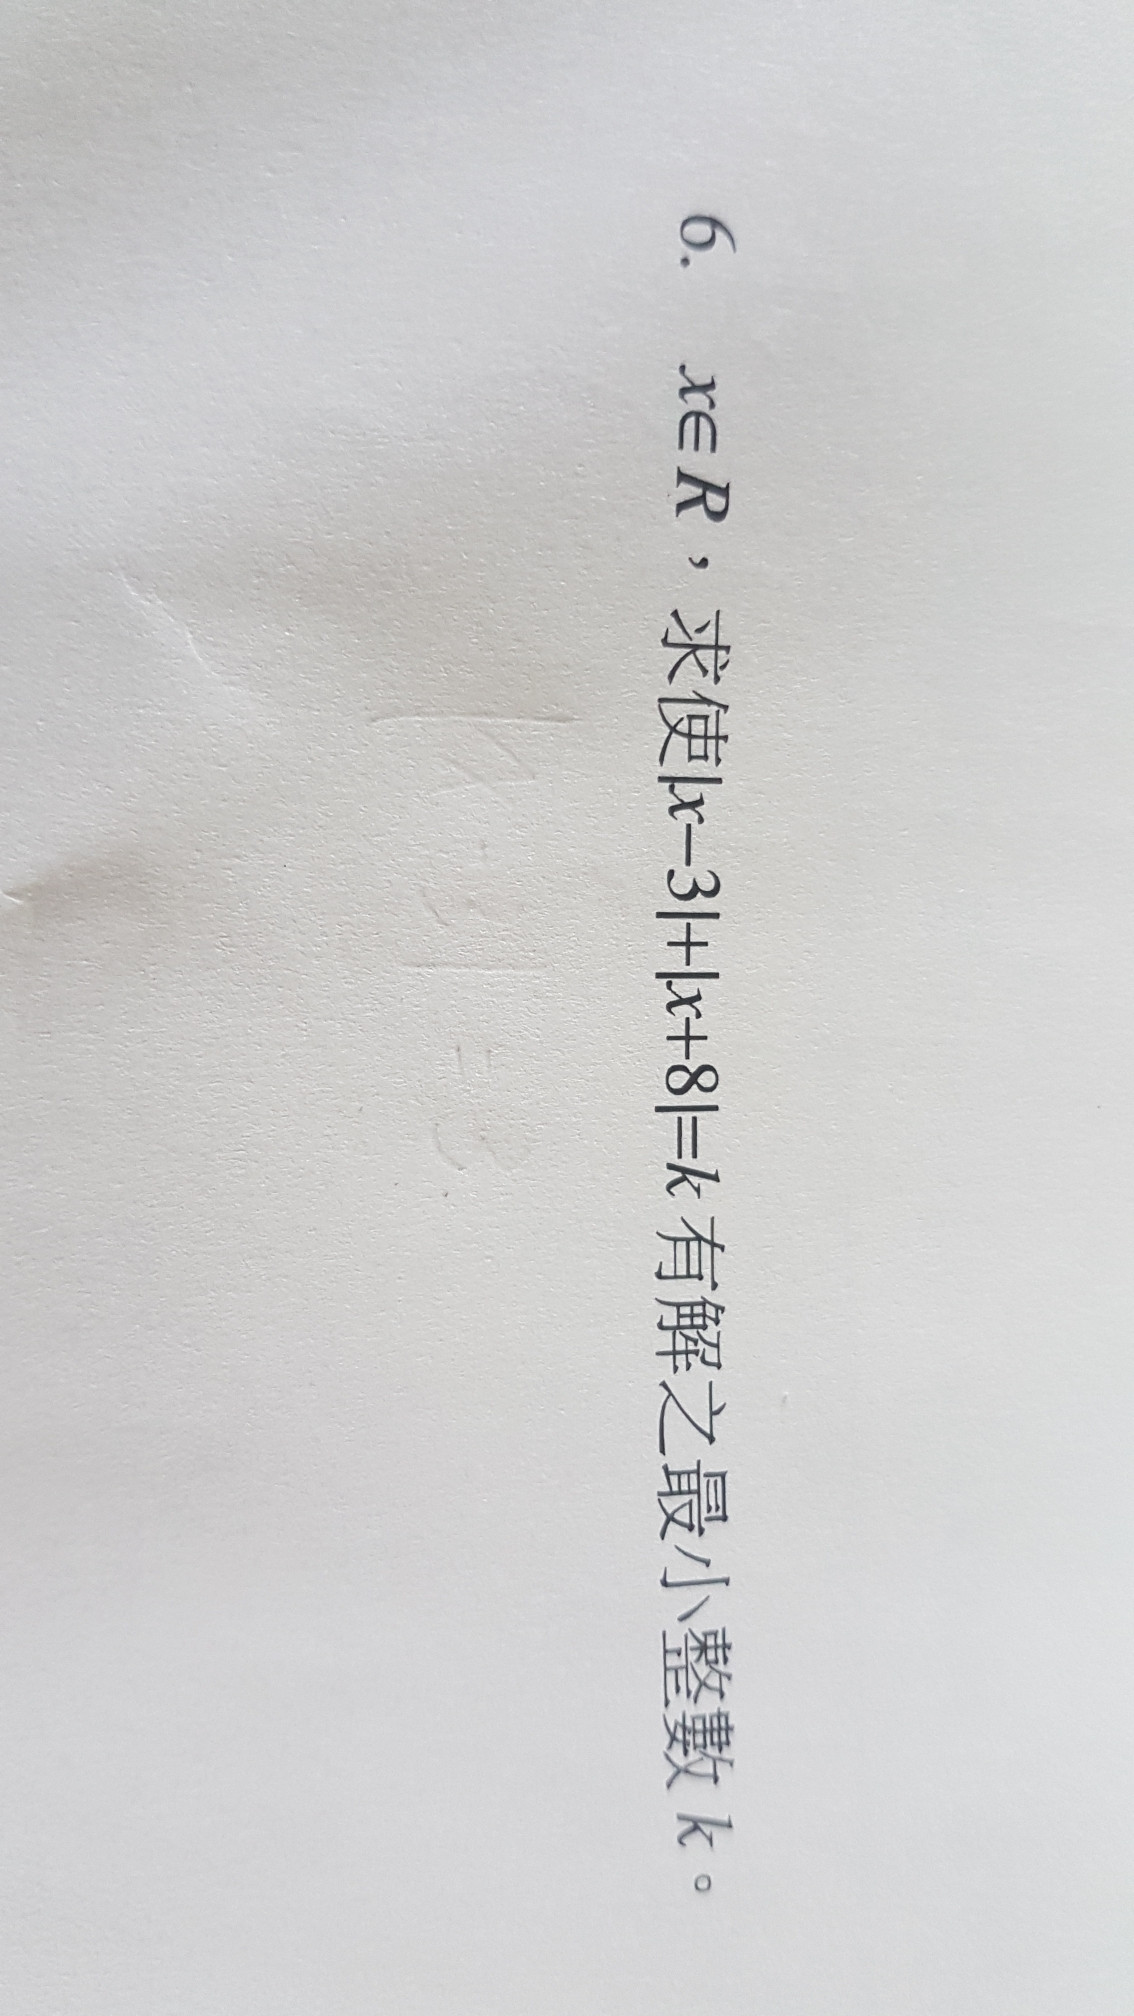 6. x∈R，求使|x−3|+|x+8|=k 有解之最小整數 k。